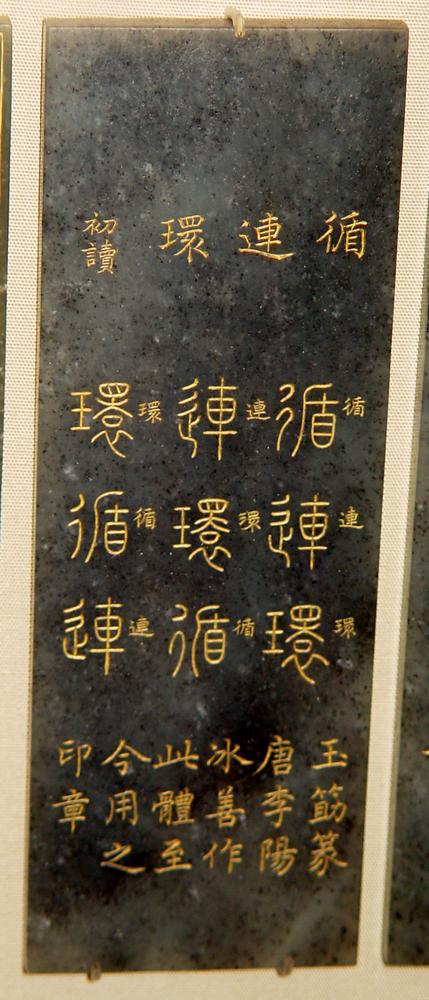 循連環
初讀
循循連連環環
連連環環循循
環環循循連連
玉筯篆
唐李陽
冰善作
此體至
今用之
印章